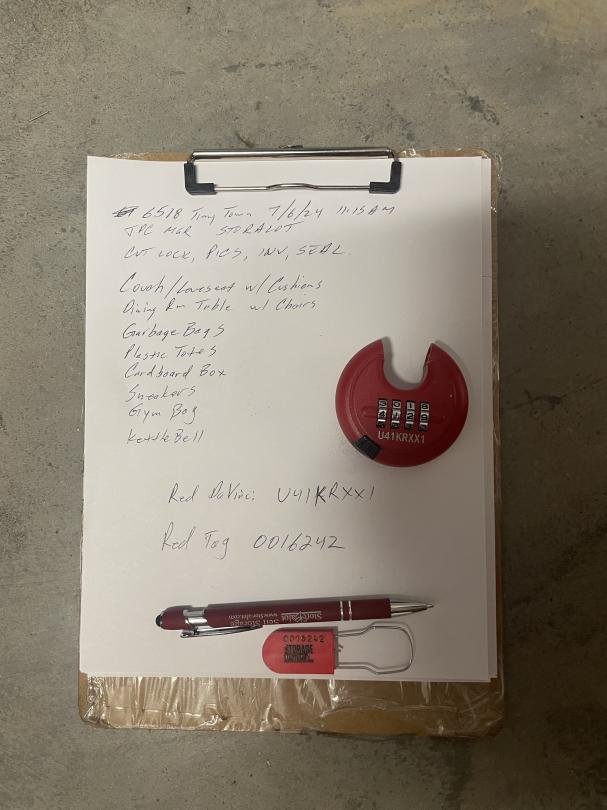 6518 Tiny Town 7/6/24 11:15 AM
JPC MGR STORALOT
CUT LOCK, PICS, INV, SEAL
Couch/Loveseat w/ Cushions
Dining Rm Table w/ Chairs
Garbage Bags
Plastic Totes
Cardboard Box
Sneakers
Gym Bag
Kettle Bell
U41KRXX1
Red DaVinci U41KRXX1
Red Tag 0016242
Self Storage
www.Stor-alot.com
0016242
STORAGE